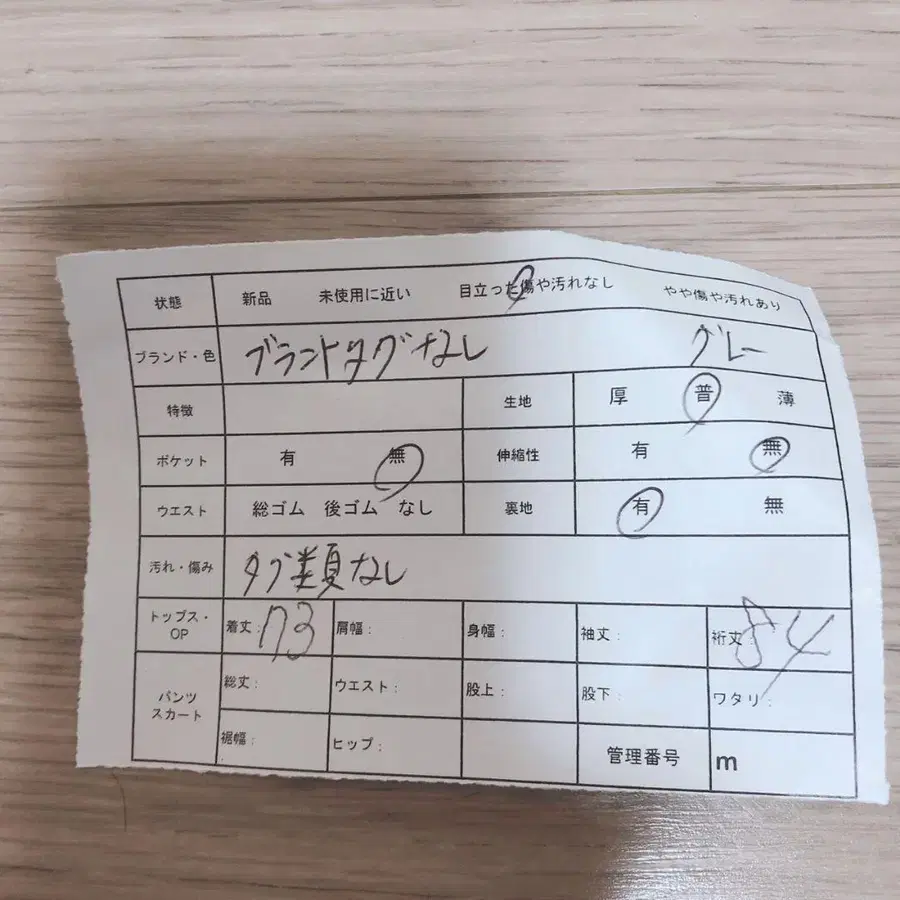 状態 新品 未使用に近い 目立った傷や汚れなし やや傷や汚れあり
ブランド・色 ブランドタグなし グレー
特徴 生地 厚 普 薄
ポケット 有 無 伸縮性 有 無
ウエスト 総ゴム 後ゴム なし 裏地 有 無
汚れ・傷み タグ類なし
トップス・OP 着丈: 73 肩幅: 身幅: 袖丈: 裄丈: 84
パンツ スカート 総丈: ウエスト: 股上: 股下: ワタリ:
裾幅: ヒップ: 管理番号 m